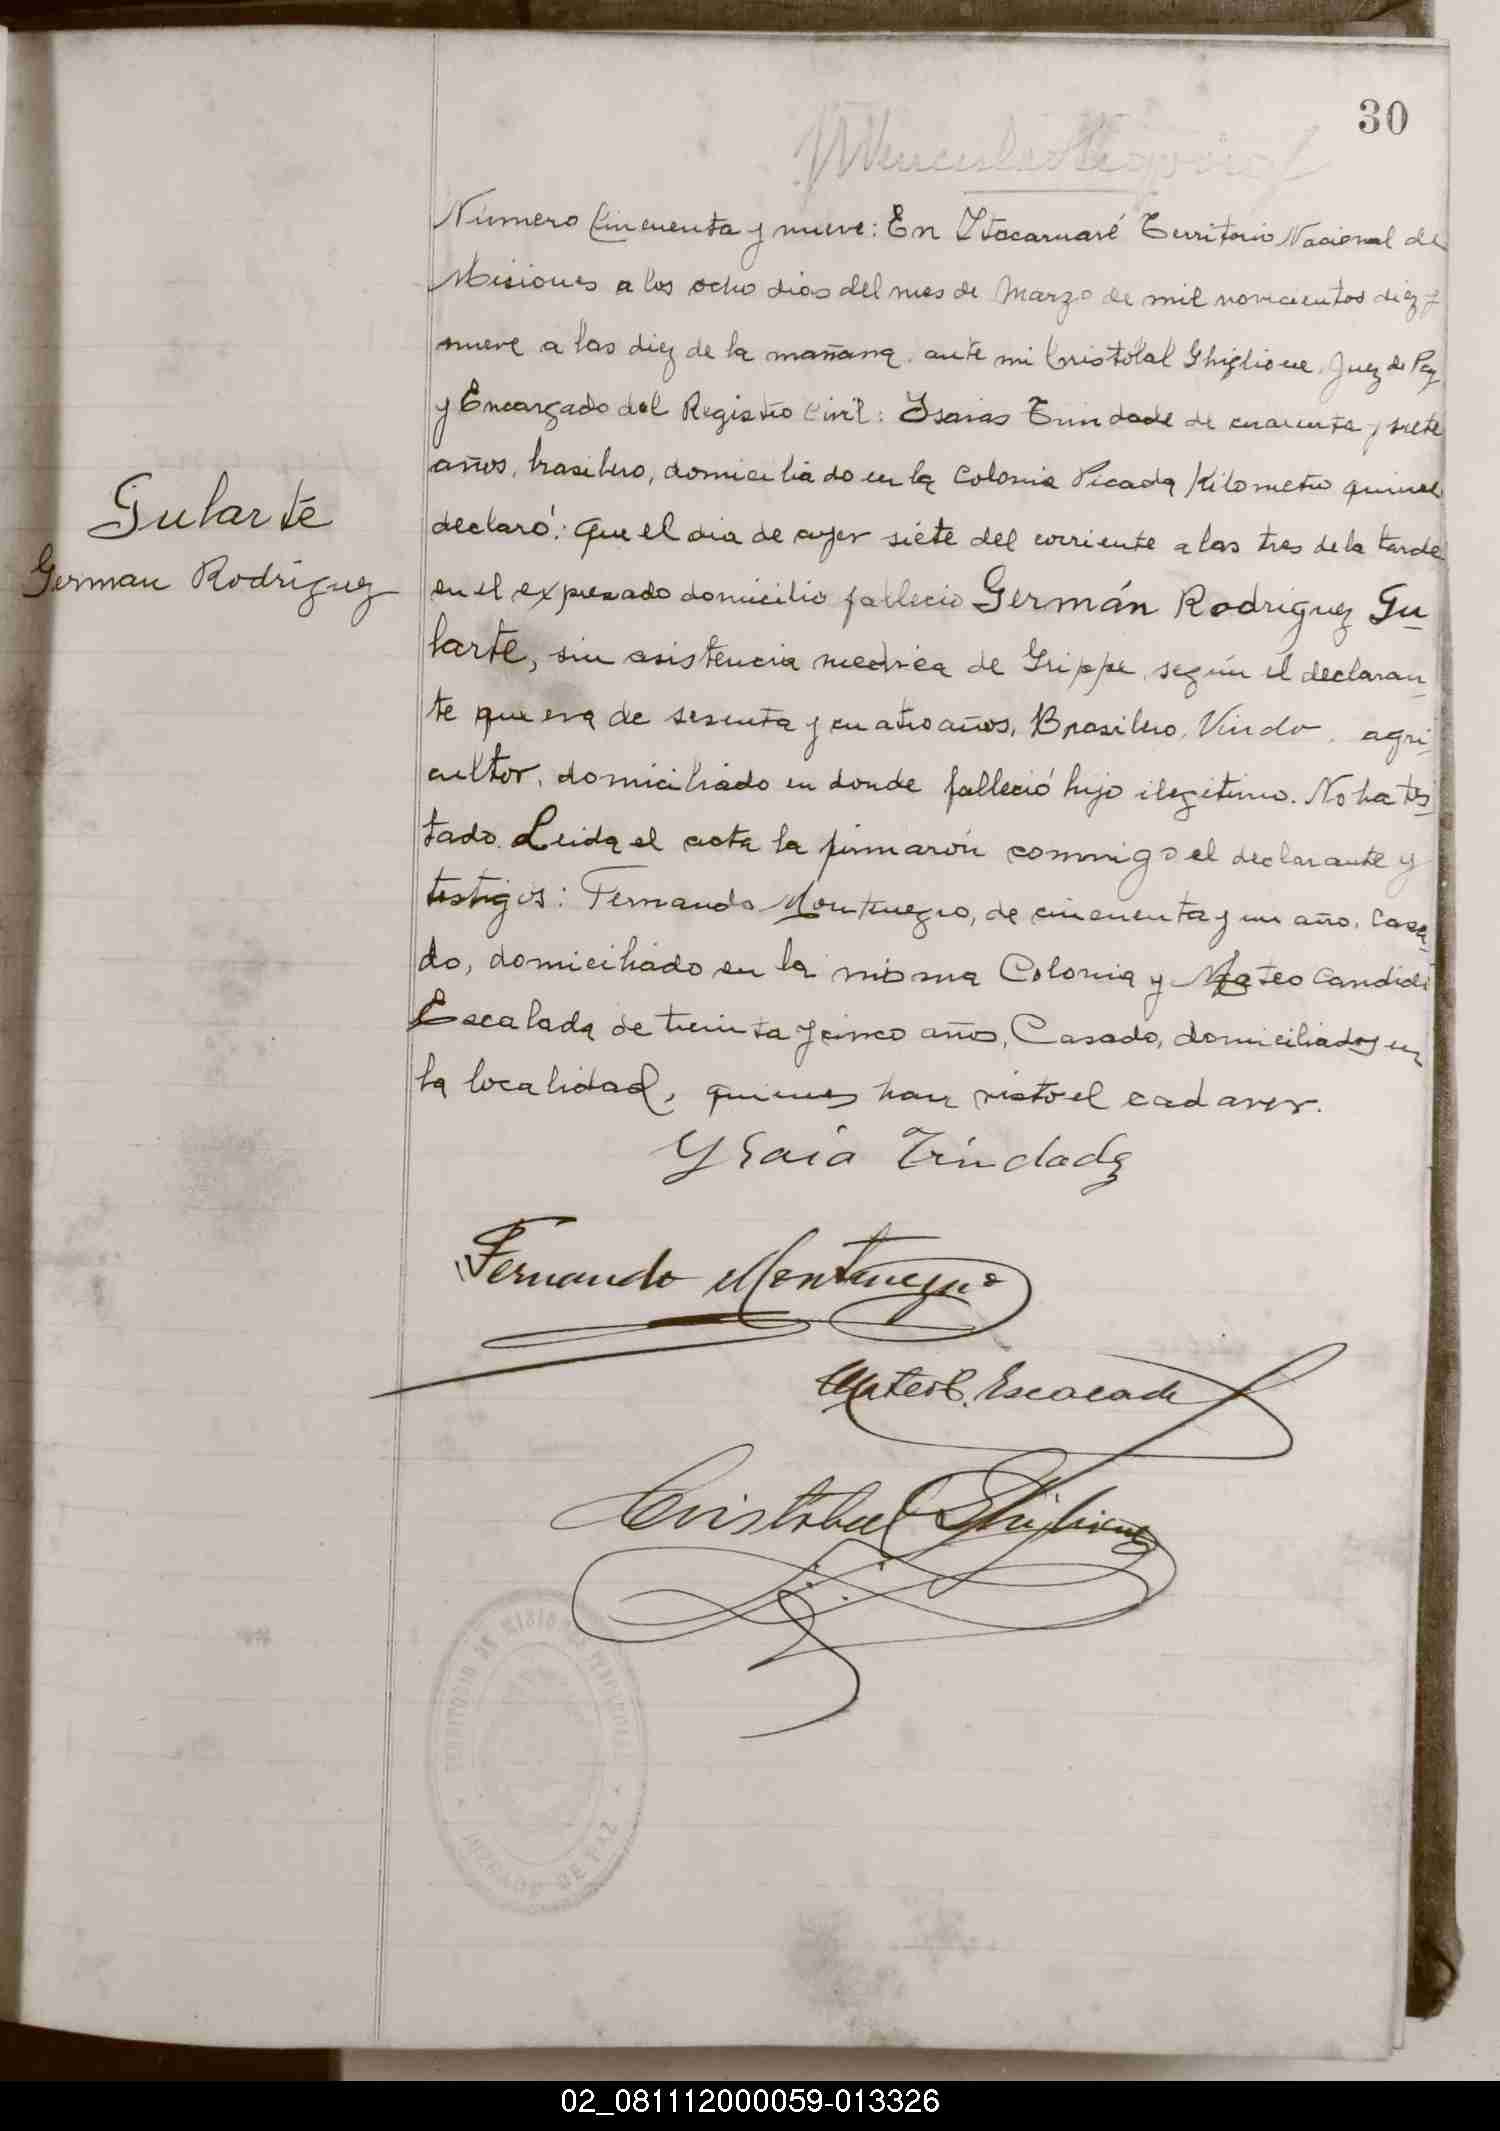 30
Número Cincuenta y nueve: En Itacaruaré Territorio Nacional de
Misiones a los ocho dias del mes de Marzo de mil novecientos diez y
nueve a las diez de la mañana, ante mi Cristobal Ghiglione, Juez de Paz
y Encargado del Registro Civil: Isaias Trindade de cuarenta y siete
años, brasilero, domiciliado en la Colonia Picada Kilometro quince
declaró: que el dia de ayer siete del corriente a las tres de la tarde
en el expresado domicilio fallecio Germán Rodriguez Gu-
larte, sin asistencia medica de Grippe, según el declaran-
te que era de sesenta y cuatro años, Brasilero, Viudo, agri-
cultor, domiciliado en donde falleció hijo ilegitimo. No ha tes-
tado. Leida el acta la firmarón conmigo el declarante y
testigos: Fernando Montenegro, de cincuenta y un año, Casa-
do, domiciliado en la misma Colonia y Mateo Candido
Escalada de treinta y cinco años, Casado, domiciliados en
la localidad, quienes han visto el cadaver.
Gularte
German Rodriguez
Ysaia Trindade
Fernando Montenegro
Mateo C. Escalada
Cristobal Ghiglione
TERRITORIO DE MISIONES
JUZGADO DE PAZ
02_081112000059-013326